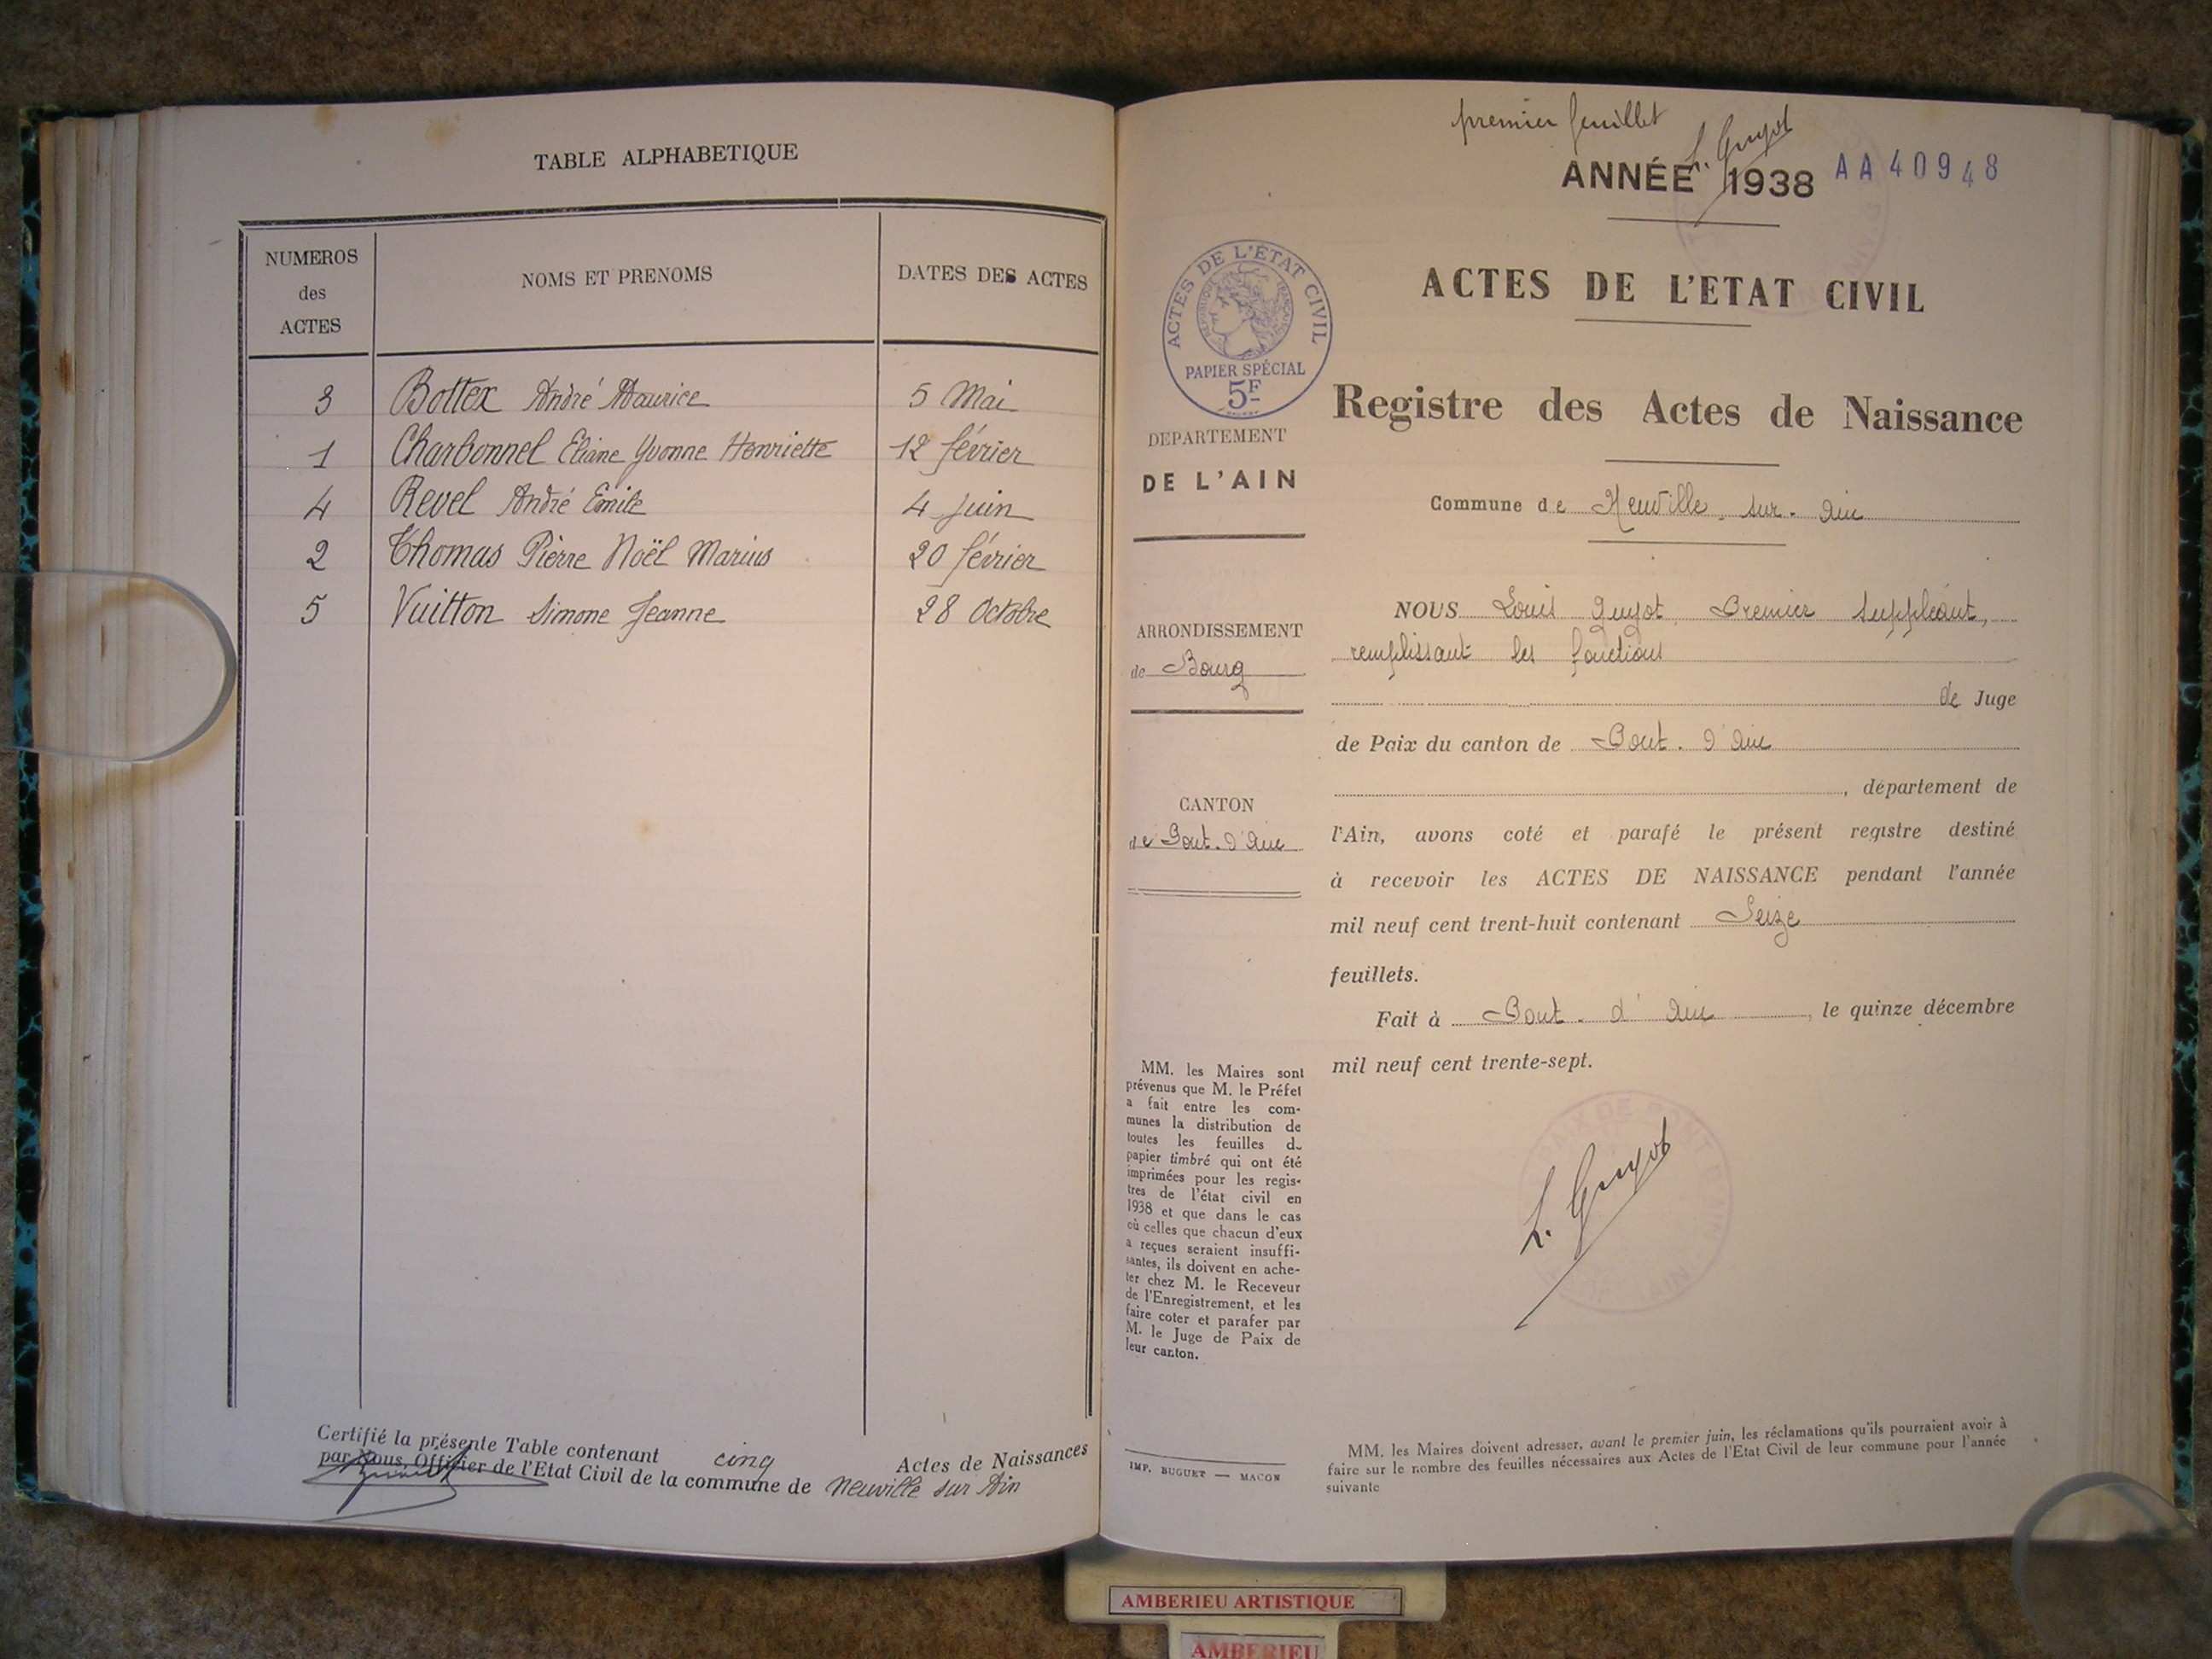 TABLE ALPHABETIQUE
NUMEROS
des
ACTES
NOMS ET PRENOMS
DATES DES ACTES
3 Bottex André Maurice 5 Mai
1 Charbonnel Eliane Yvonne Henriette 12 février
4 Revel André Emile 4 Juin
2 Thomas Pierre Noël Marius 20 février
5 Vuitton Simone Jeanne 28 Octobre
Certifié la présente Table contenant cinq Actes de Naissances
par Nous, Officier de l'Etat Civil de la commune de Neuville sur Ain
premier feuillet
L. Guyot
ANNÉE 1938 AA40948
ACTES DE L'ETAT CIVIL
Registre des Actes de Naissance
Commune de Neuville-sur-Ain
ACTES DE L'ETAT CIVIL
REPUBLIQUE FRANÇAISE
PAPIER SPÉCIAL
5F
DEPARTEMENT
DE L'AIN
ARRONDISSEMENT
de Bourg
CANTON
de Pont-d'Ain
MM. les Maires sont
prévenus que M. le Préfet
a fait entre les com-
munes la distribution de
toutes les feuilles d
papier timbré qui ont été
imprimées pour les regis-
tres de l'état civil en
1938 et que dans le cas
où celles que chacun d'eux
a reçues seraient insuffi-
santes, ils doivent en ache-
ter chez M. le Receveur
de l'Enregistrement, et les
faire coter et parafer par
M. le Juge de Paix de
leur canton.
IMP. BUGUET — MACON
NOUS Louis Guyot, Premier Suppléant,
remplissant les fonctions
de Juge
de Paix du canton de Pont-d'Ain
, département de
l'Ain, avons coté et parafé le présent registre destiné
à recevoir les ACTES DE NAISSANCE pendant l'année
mil neuf cent trent-huit contenant Seize
feuillets.
Fait à Pont-d'Ain, le quinze décembre
mil neuf cent trente-sept.
PAIX DE PONT D'AIN
L. Guyot
MM. les Maires doivent adresser, avant le premier juin, les réclamations qu'ils pourraient avoir à
faire sur le nombre des feuilles nécessaires aux Actes de l'Etat Civil de leur commune pour l'année
suivante
AMBERIEU ARTISTIQUE
AMBERIEU